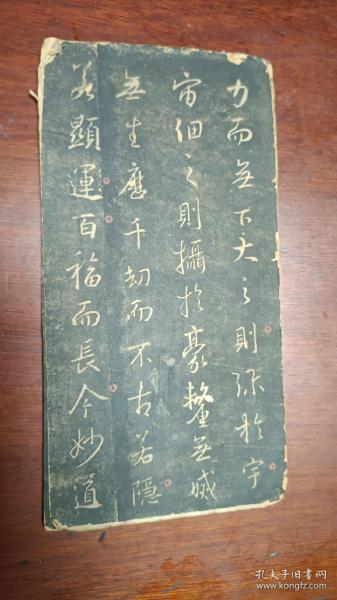 力而無下大之則弥於宇
宙細之則攝於豪釐無滅
無生歷千劫而不古若隱
若顯運百福而長今妙道
孔夫子旧书网
www.kongfz.com